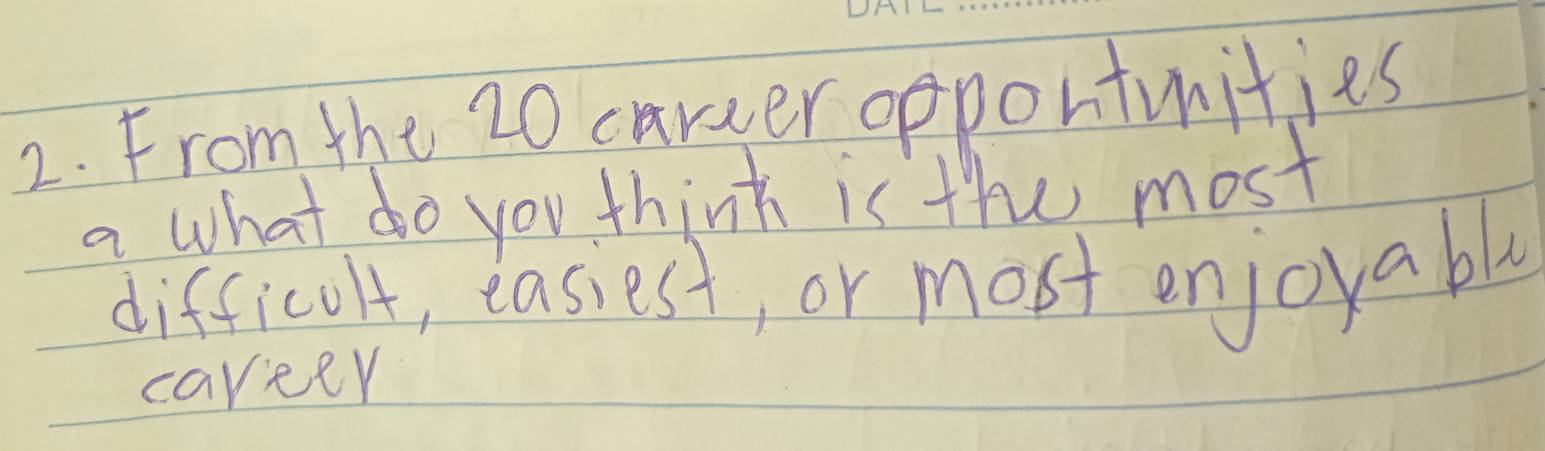 DATE ..............
2. From the 20 career opportunities
a what do you think is the most
difficult, easiest, or most enjoyable
career